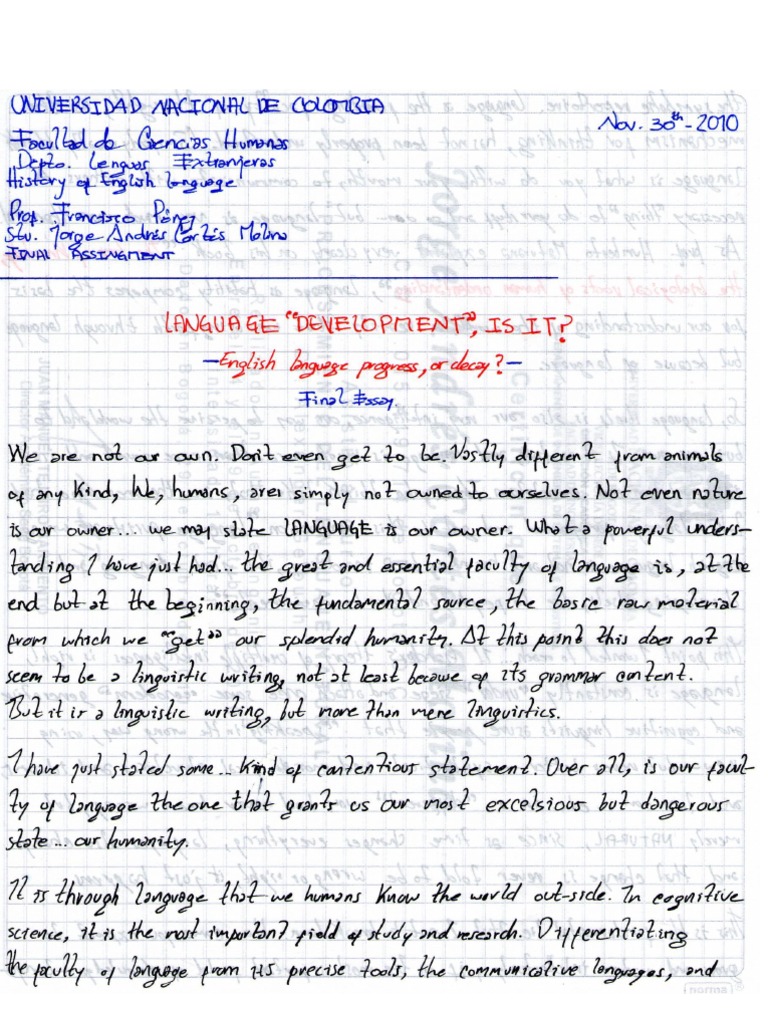 UNIVERSIDAD NACIONAL DE COLOMBIA
Nov. 30th - 2010
Facultad de Ciencias Humanas
Depto. Lenguas Extranjeras
History of English Language
Prof. Francisco Pérez
Stu. Jorge Andrés Cortés Molina
FINAL ASSINGMENT
LANGUAGE "DEVELOPMENT", IS IT?
—English language progress, or decay?—
Final Essay.
We are not our own. Don't even get to be. Vastly different from animals
of any kind, We, humans, are simply not owned to ourselves. Not even nature
is our owner... we may state LANGUAGE is our owner. What a powerful unders-
tanding I have just had... the great and essential faculty of language is, at the
end but at the beginning, the fundamental source, the basic raw material
from which we "get" our splendid humanity. At this point this does not
seem to be a linguistic writing, not at least because of its grammar content.
But it is a linguistic writing, but more than mere linguistics.
I have just stated some... kind of contentious statement. Over all, is our facul
ty of language the one that grants us our most excelsious but dangerous
state... our humanity.
It is through language that we humans know the world out-side. In cognitive
science, it is the most important field of study and research. Differentiating
the faculty of language from its precise tools, the communicative languages, and
norma